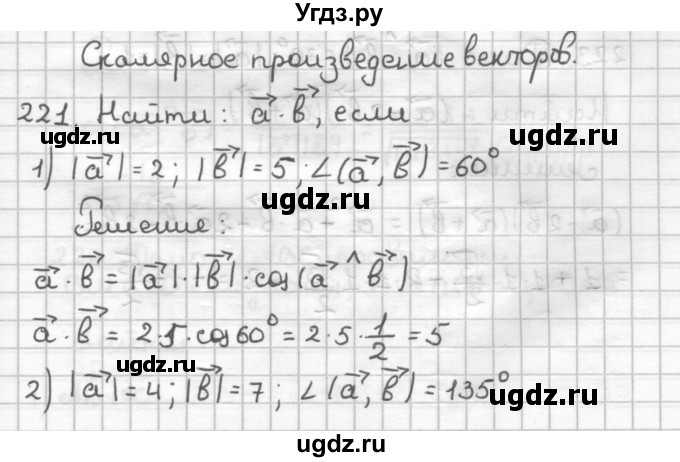 Угдз.ру
Скалярное произведение векторов.
221. Найти: a⃗·b⃗, если
ugdz.ru
ugdz.ru
1) |a⃗|=2; |b⃗|=5; ∠(a⃗, b⃗)=60°
ugdz.ru
Решение:
a⃗·b⃗=|a⃗|·|b⃗|·cos(a⃗^b⃗)
a⃗·b⃗=2·5·cos60°=2·5·1/2=5
ugdz.ru
2) |a⃗|=4; |b⃗|=7; ∠(a⃗, b⃗)=135°
ugdz.ru
ugdz.ru
ugdz.ru